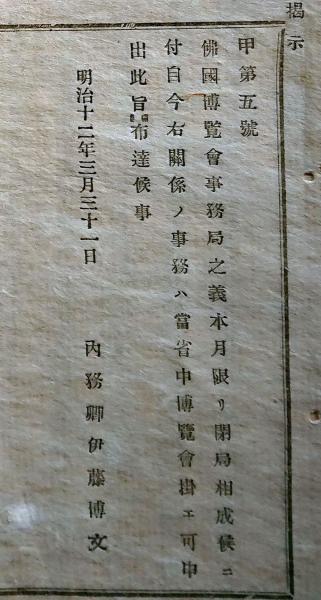 揭示
甲第五號
佛國博覽會事務局之義本月限リ閉局相成候ニ
付自今右關係ノ事務ハ當省中博覽會掛エ可申
出此旨布達候事
明治十二年三月三十一日
內務卿伊藤博文